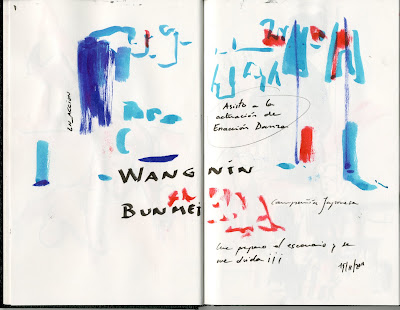 EN_ACCIÓN
Asisto a la
actuación de
Enacción Danza
WANG NIN
BUNMEI
compañía Japonesa
me preparo el escenario y se
me olvida ¡¡¡